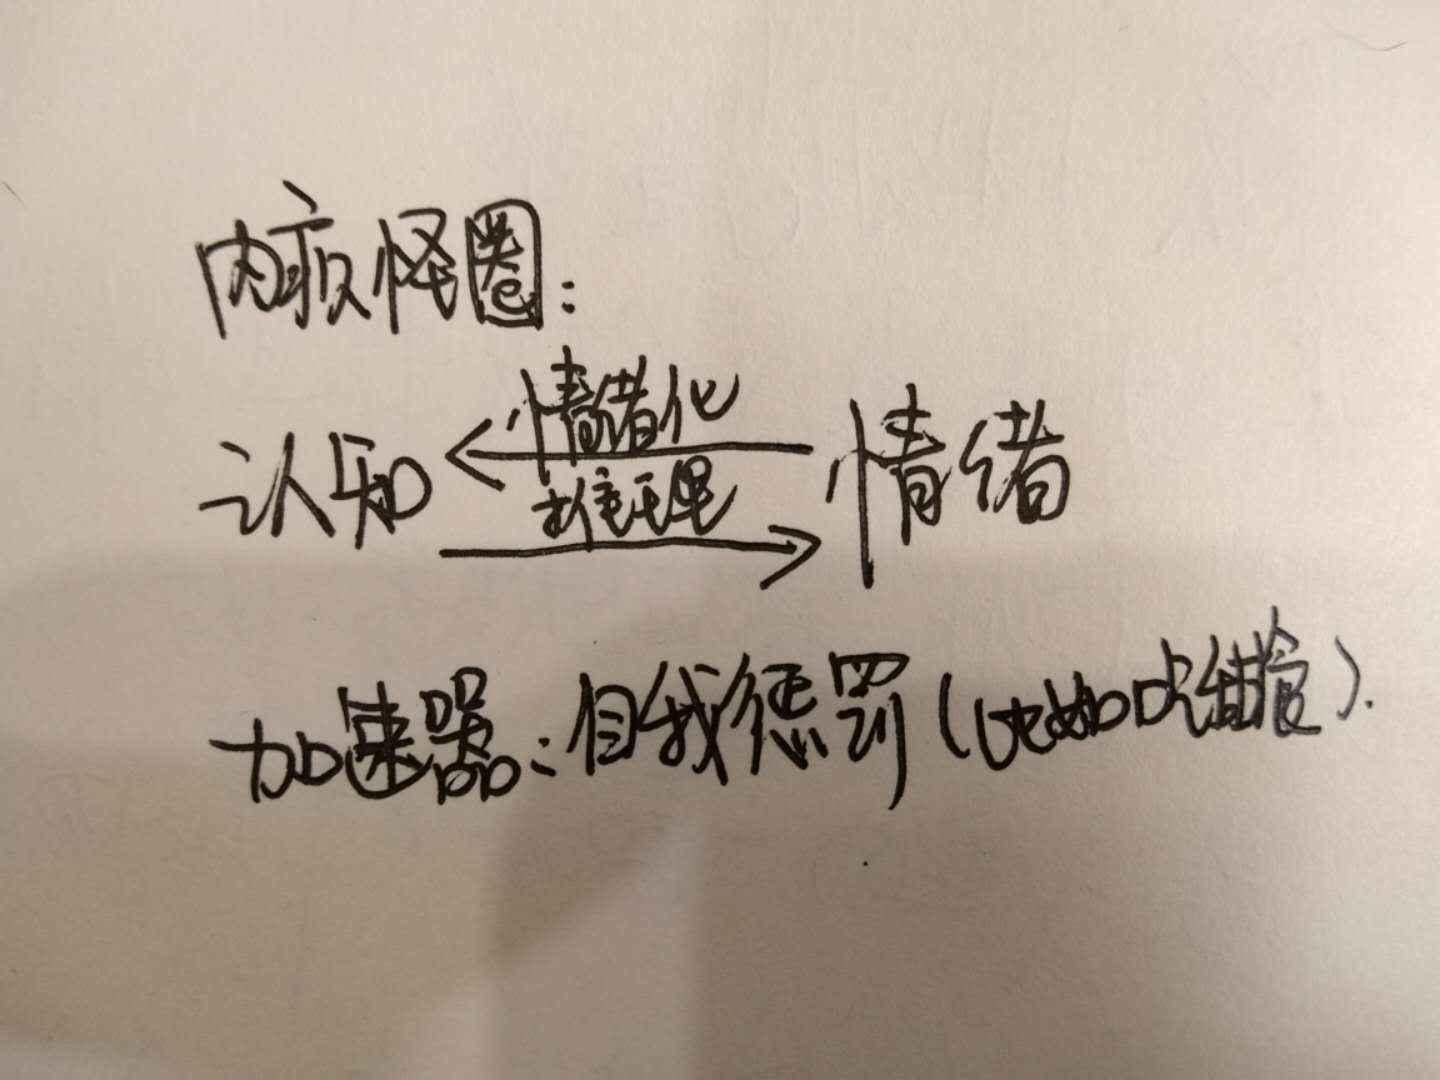 内疚怪圈：
情绪化
认知 情绪
推理
加速器：自我惩罚（比如吃).